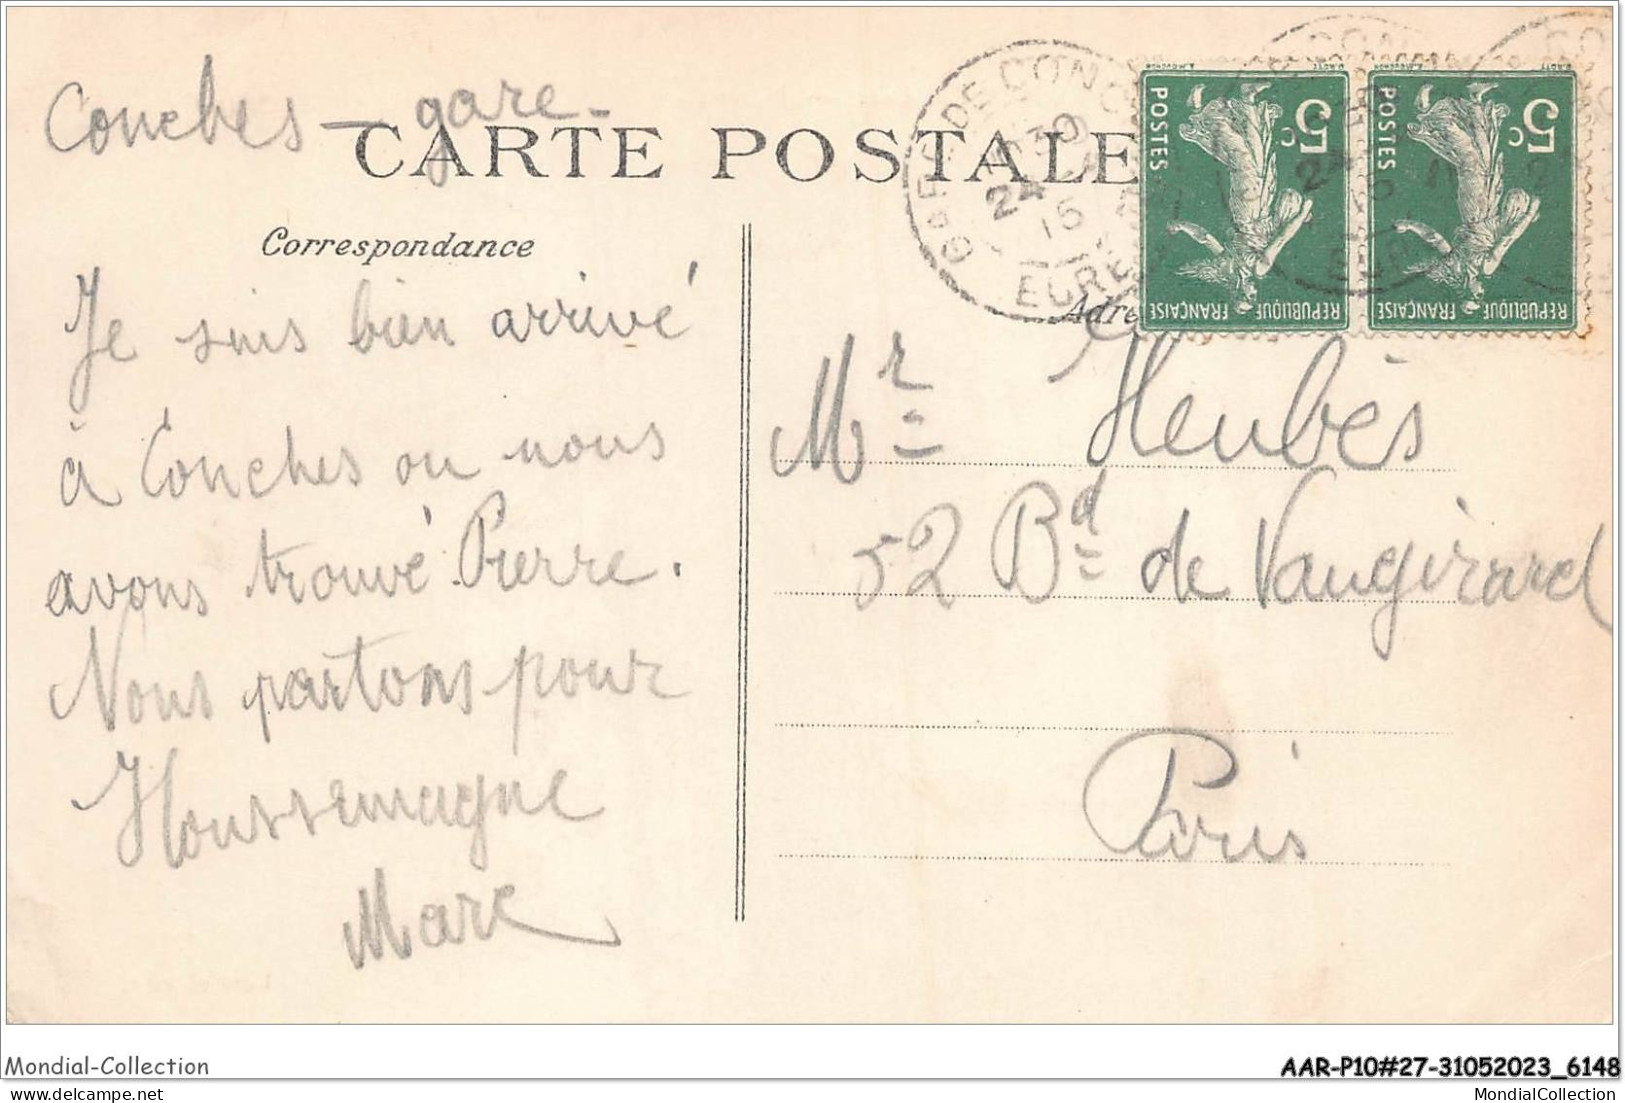 Conches - gare -
CARTE POSTALE
Correspondance
Je suis bien arrivé
à Conches ou nous
avons trouvé Pierre.
Nous partons pour
Houssemagne
Marc
GARE DE CONC
24
15
EURE
POSTES
5c
REPUBLIQUE FRANÇAISE
POSTES
5c
REPUBLIQUE FRANÇAISE
Adre
Mr Heubès
52 Bd de Vaugirard
Paris
Mondial-Collection
mondialcollection
AAR-P10#27-31052023_6148
MondialCollection